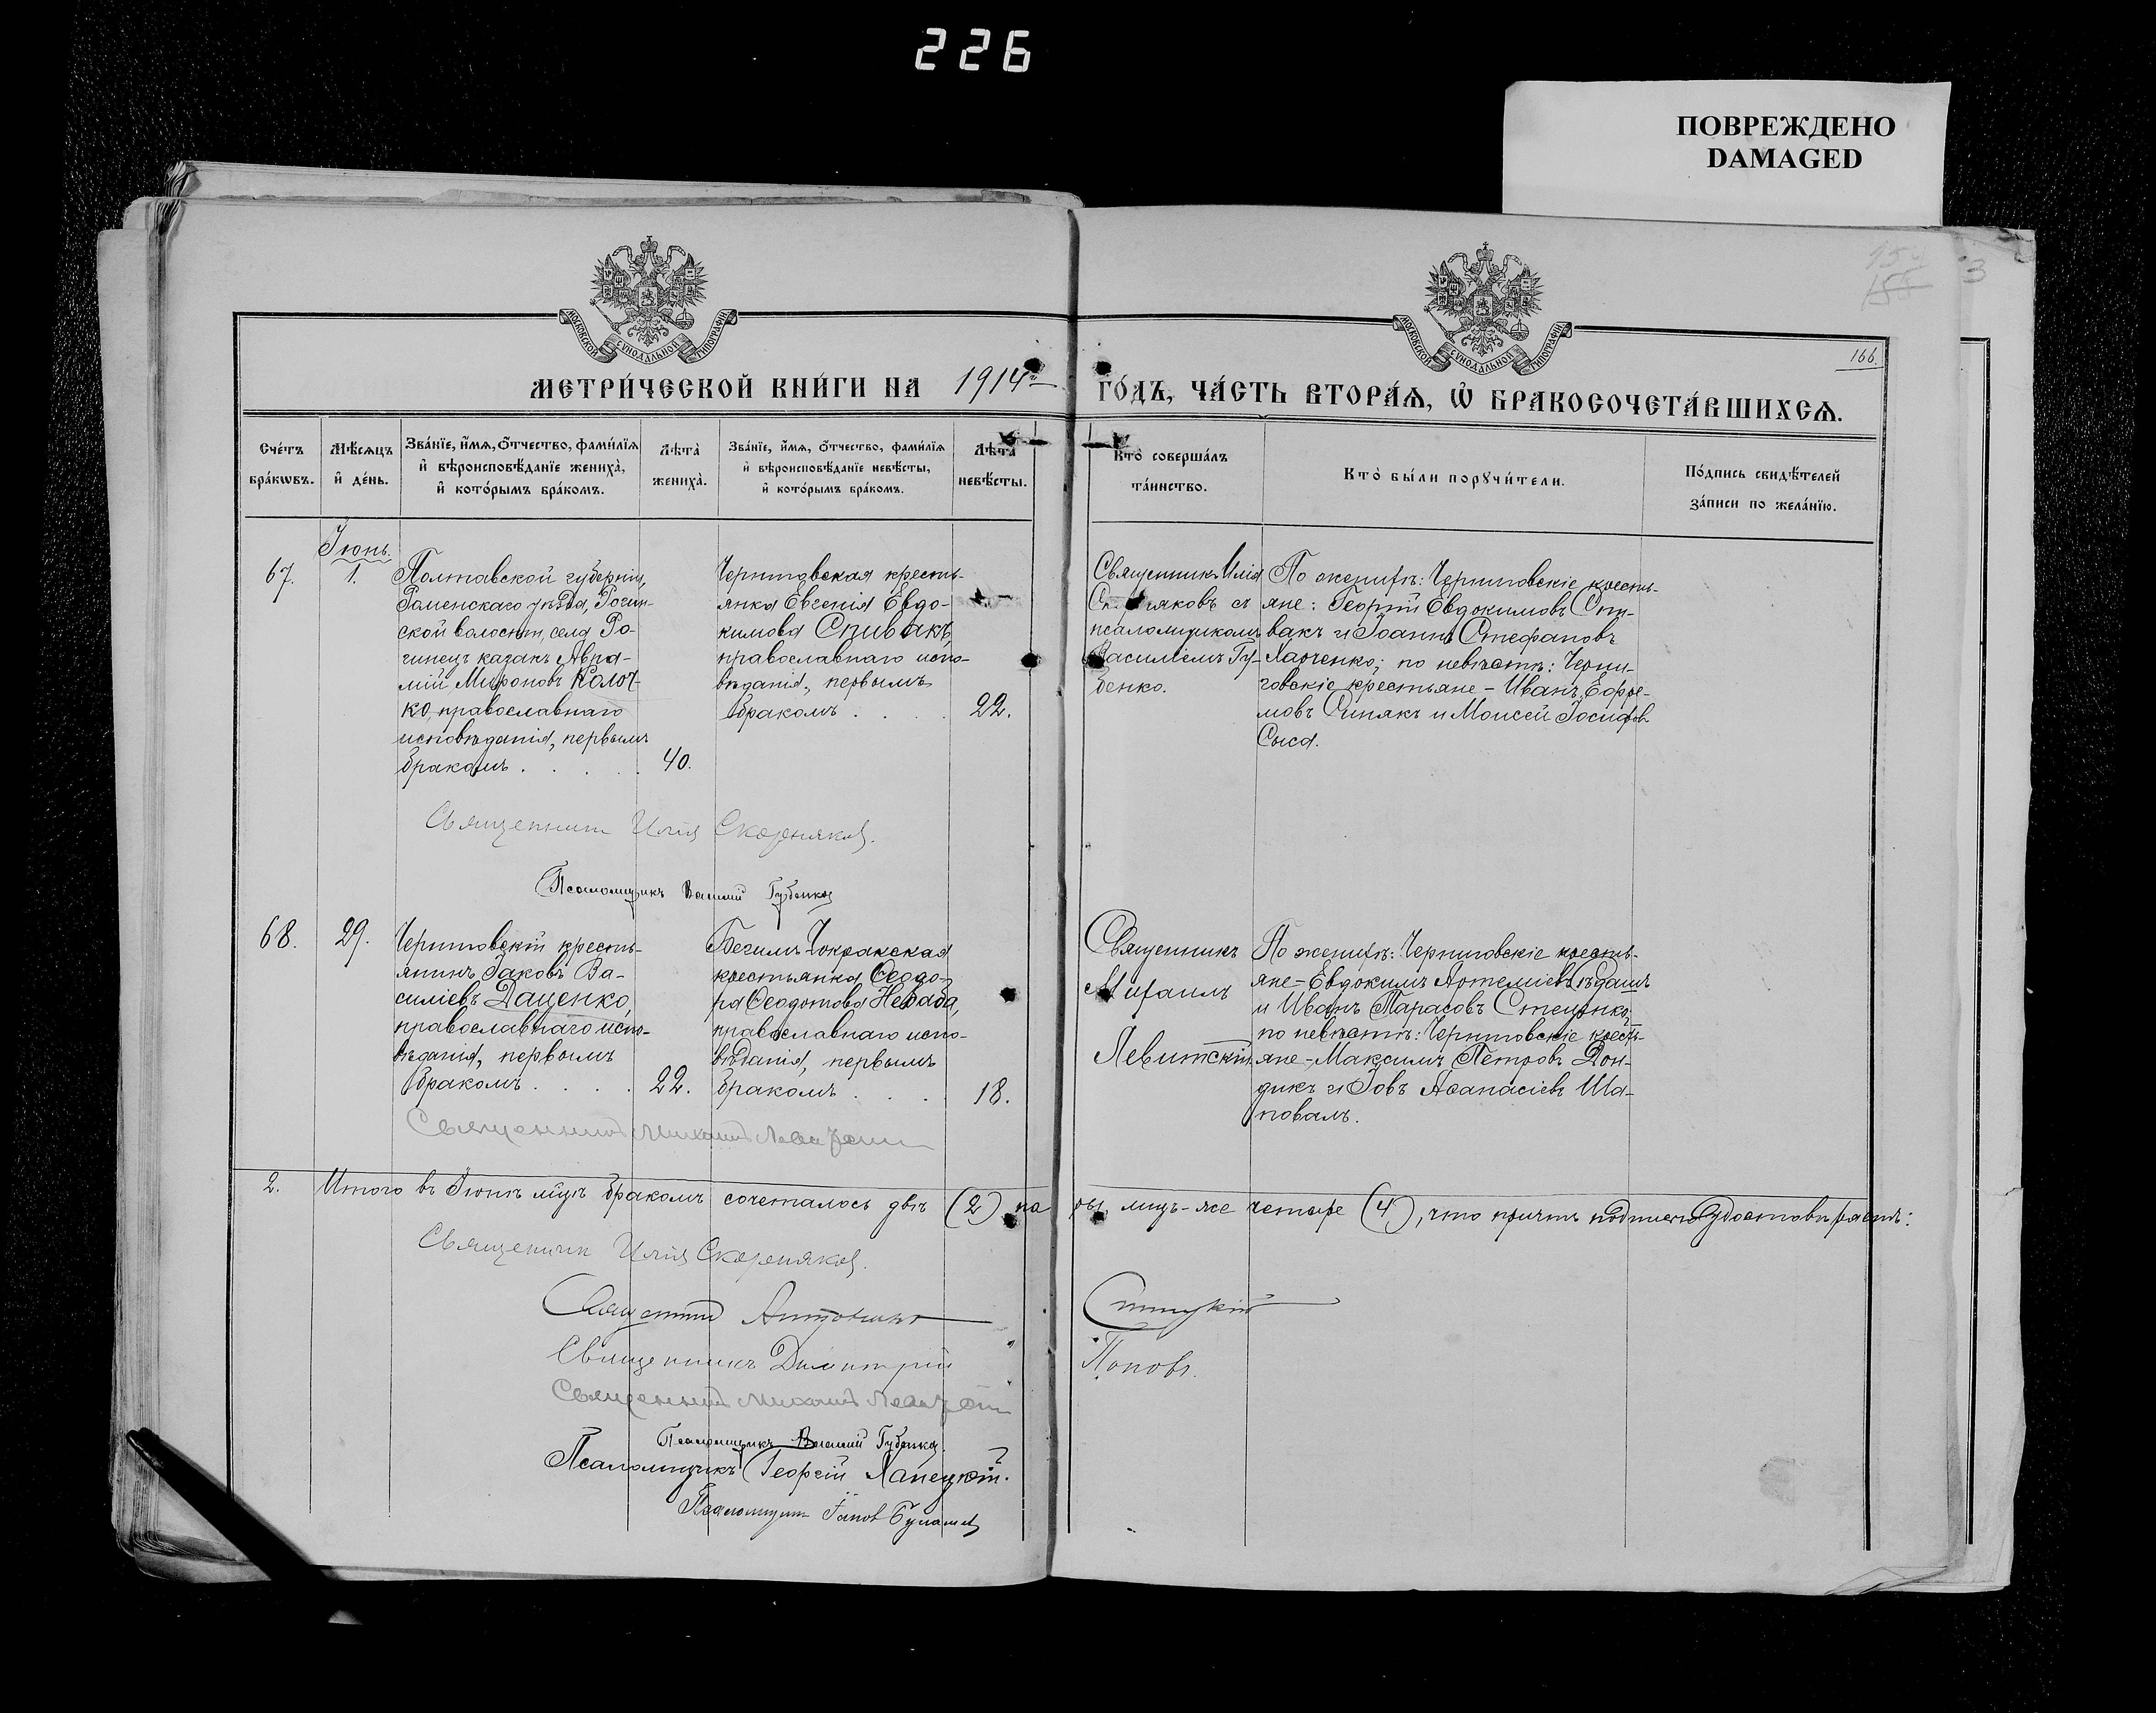 226
ПОВРЕЖДЕНО
DAMAGED
3
166.
МОСКОВСКОЙ СѴНОДАЛЬНОЙ ТИПОГРАФІИ
МОСКОВСКОЙ СѴНОДАЛЬНОЙ ТИПОГРАФІИ
МЕТРИ́ЧЕСКОЙ КНИ́ГИ НА 1914 й ГО́ДЪ, ЧА́СТЬ ВТОРА́Ѧ, Ѡ҆ БРАКОСОЧЕТА́ВШИХСѦ.
Сче́тъ бра́кѡвъ.
Мѣ́сѧцъ и҆ де́нь.
Зва́нїе, и҆́мѧ, ѻ҆́тчество, фами́лїѧ
и҆ вѣроисповѣ́данїе жениха̀,
и҆ кото́рымъ бра́комъ.
Лѣта̀ жениха̀.
Зва́нїе, и҆́мѧ, ѻ҆́тчество, фами́лїѧ
и҆ вѣроисповѣ́данїе невѣ́сты,
и҆ кото́рымъ бра́комъ.
Лѣта̀ невѣ́сты.
Кто̀ соверша́лъ
та́инство.
Кто̀ бы́ли порꙋчи́тели.
По́дпись свидѣ́телей
за́писи по жела́нїю.
Іюнь.
67.
1.
Полтавской губерніи,
Роменскаго уѣзда, Рогин-
ской волости, села Ро-
гинецъ казакъ Авра-
мій Мироновъ Колот-
ко, православнаго
исповѣданія, первымъ
бракомъ . . . . .
40.
Черниговская кресть-
янка Евгенія Евдо-
кимова Спивакъ,
православнаго испо-
вѣданія, первымъ
бракомъ . . . .
22.
Священникъ Илія
Скорняковъ съ
псаломщикомъ
Василіемъ Гу-
бенко.
По женихѣ: Черниговскіе кресть-
яне: Георгій Евдокимовъ Спи-
вакъ и Іоаннъ Стефановъ
Харченко; по невѣстѣ: Черни-
говскіе крестьяне - Иванъ Ефре-
мовъ Синякъ и Моисей Іосифов
Сыса.
Священникъ Илія Скорняковъ.
Псаломщикъ Василий Губенко
68.
29.
Черниговскій кресть-
янинъ Іаковъ Ва-
силіевъ Даценко,
православнаго испо-
вѣданія, первымъ
бракомъ . . . .
22.
Бегимъ-Чокракская
крестьянка Ѳеодо-
ра Ѳеодотова Неваба,
православнаго испо-
вѣданія, первымъ
бракомъ . . .
18.
Священникъ
Михаилъ
Левитскій.
По женихѣ: Черниговскіе кресть-
яне - Евдокимъ Артеміевъ
и Иванъ Тарасовъ Стеценко;
по невѣстѣ: Черниговскіе кресть-
яне - Максимъ Петровъ Дон-
дикъ и Іовъ Аѳанасіевъ Ша-
повалъ.
Священникъ Михаилъ Левитскій
2.
Итого въ Іюнѣ мцѣ бракомъ сочеталось двѣ (2) пары, лицъ-же четыре (4), что причтъ подписью удостовѣряетъ:
Священникъ Илія Скорняковъ.
Священникъ Антонинъ Синицкій
Священникъ Димитрій Поповъ.
Священникъ Михаилъ Левитскій
Псаломщикъ Василий Губенко.
Псаломщикъ Георгій Лапецкій.
Псаломщикъ